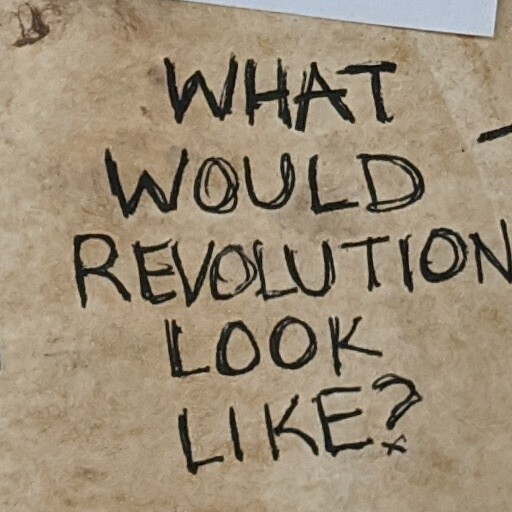 WHAT
WOULD
REVOLUTION
LOOK
LIKE?